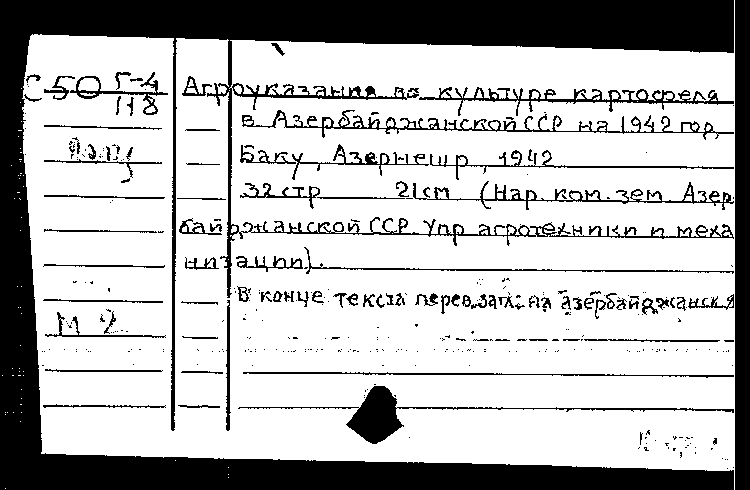 С 50 Г-4 Агроуказания по культуре картофеля
118 в Азербайджанской ССР на 1942 год,
Баку, Азернешр, 1942
32 стр 21 см (Нар. ком. зем. Азер
байджанской ССР. Упр агротехники и меха
низации).
В конце текста перев. загл. на азербайджанск. я
М 2